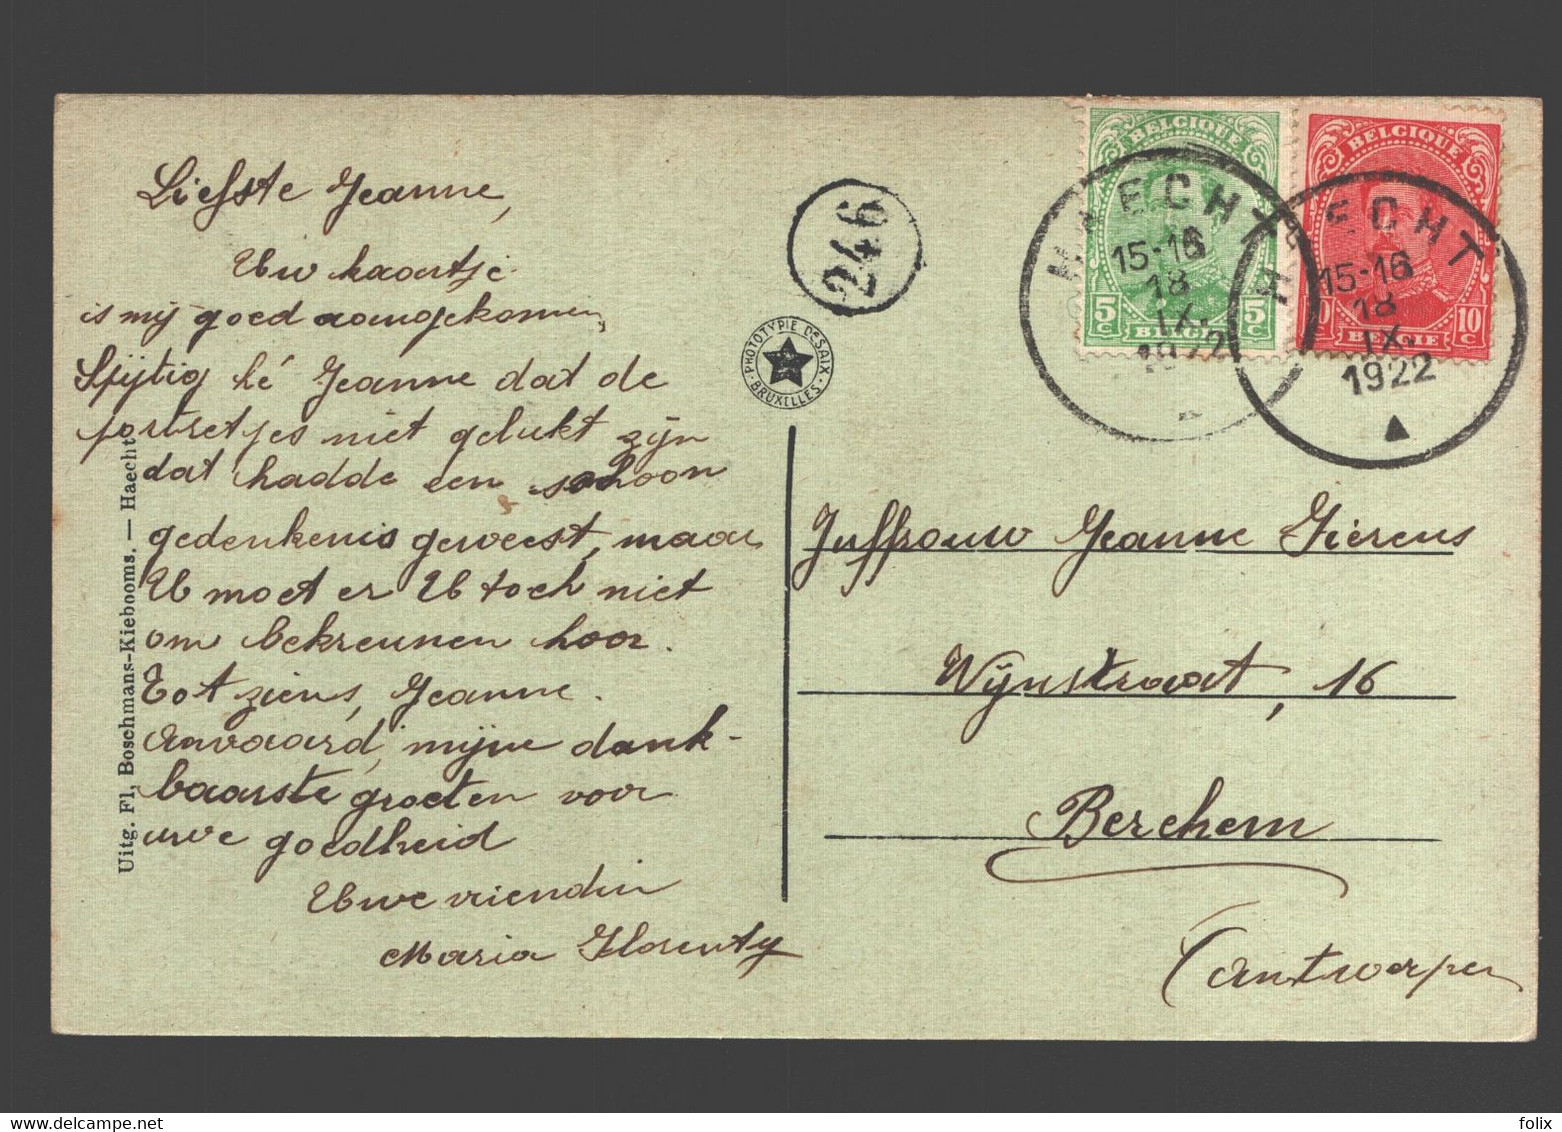 Liefste Jeanne,
Uw kaartje
is mij goed aangekomen,
Spijtig hé Jeanne dat de
portretjes niet gelukt zijn
dat hadde een schoon
gedenkenis geweest, maar
U moet er U toch niet
om bekreunen hoor.
Tot ziens, Jeanne.
Anvaard, mijne dank-
baarste groeten voor
uwe goedheid
Uwe vriendin
Maria Florenty
Uitg. Fl. Boschmans-Kiebooms. — Haecht
246
PHOTOTYPIE DESAIX
BRUXELLES
BELGIQUE
5c 5c
BELGIË
BELGIQUE
10 10c
BELGIE
HAECHT
15-16
18
IX.
1922
HAECHT
15-16
18
IX.
1922
Juffrouw Jeanne Gierens
Wijnstraat, 16
Berchem
(antwerpen
felix